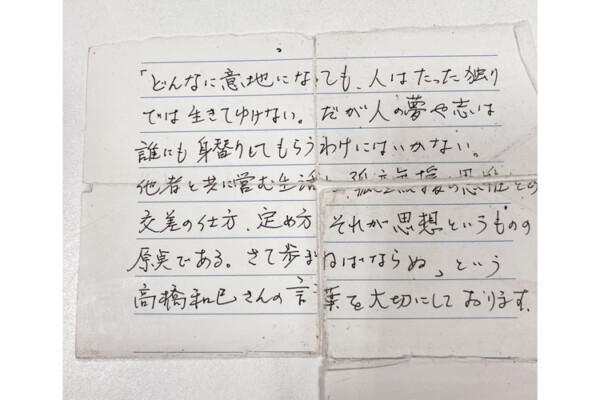 「どんなに意地になっても、人はたった独り
では生きてゆけない。だが人の夢や志は
誰にも身替りしてもらうわけにはいかない。
他者と共に営む生活と孤立無援の思惟との
交差の仕方、定め方 それが思想というものの
原点である。さて歩まねばならぬ」という
高橋和巳さんの言葉を大切にしております。